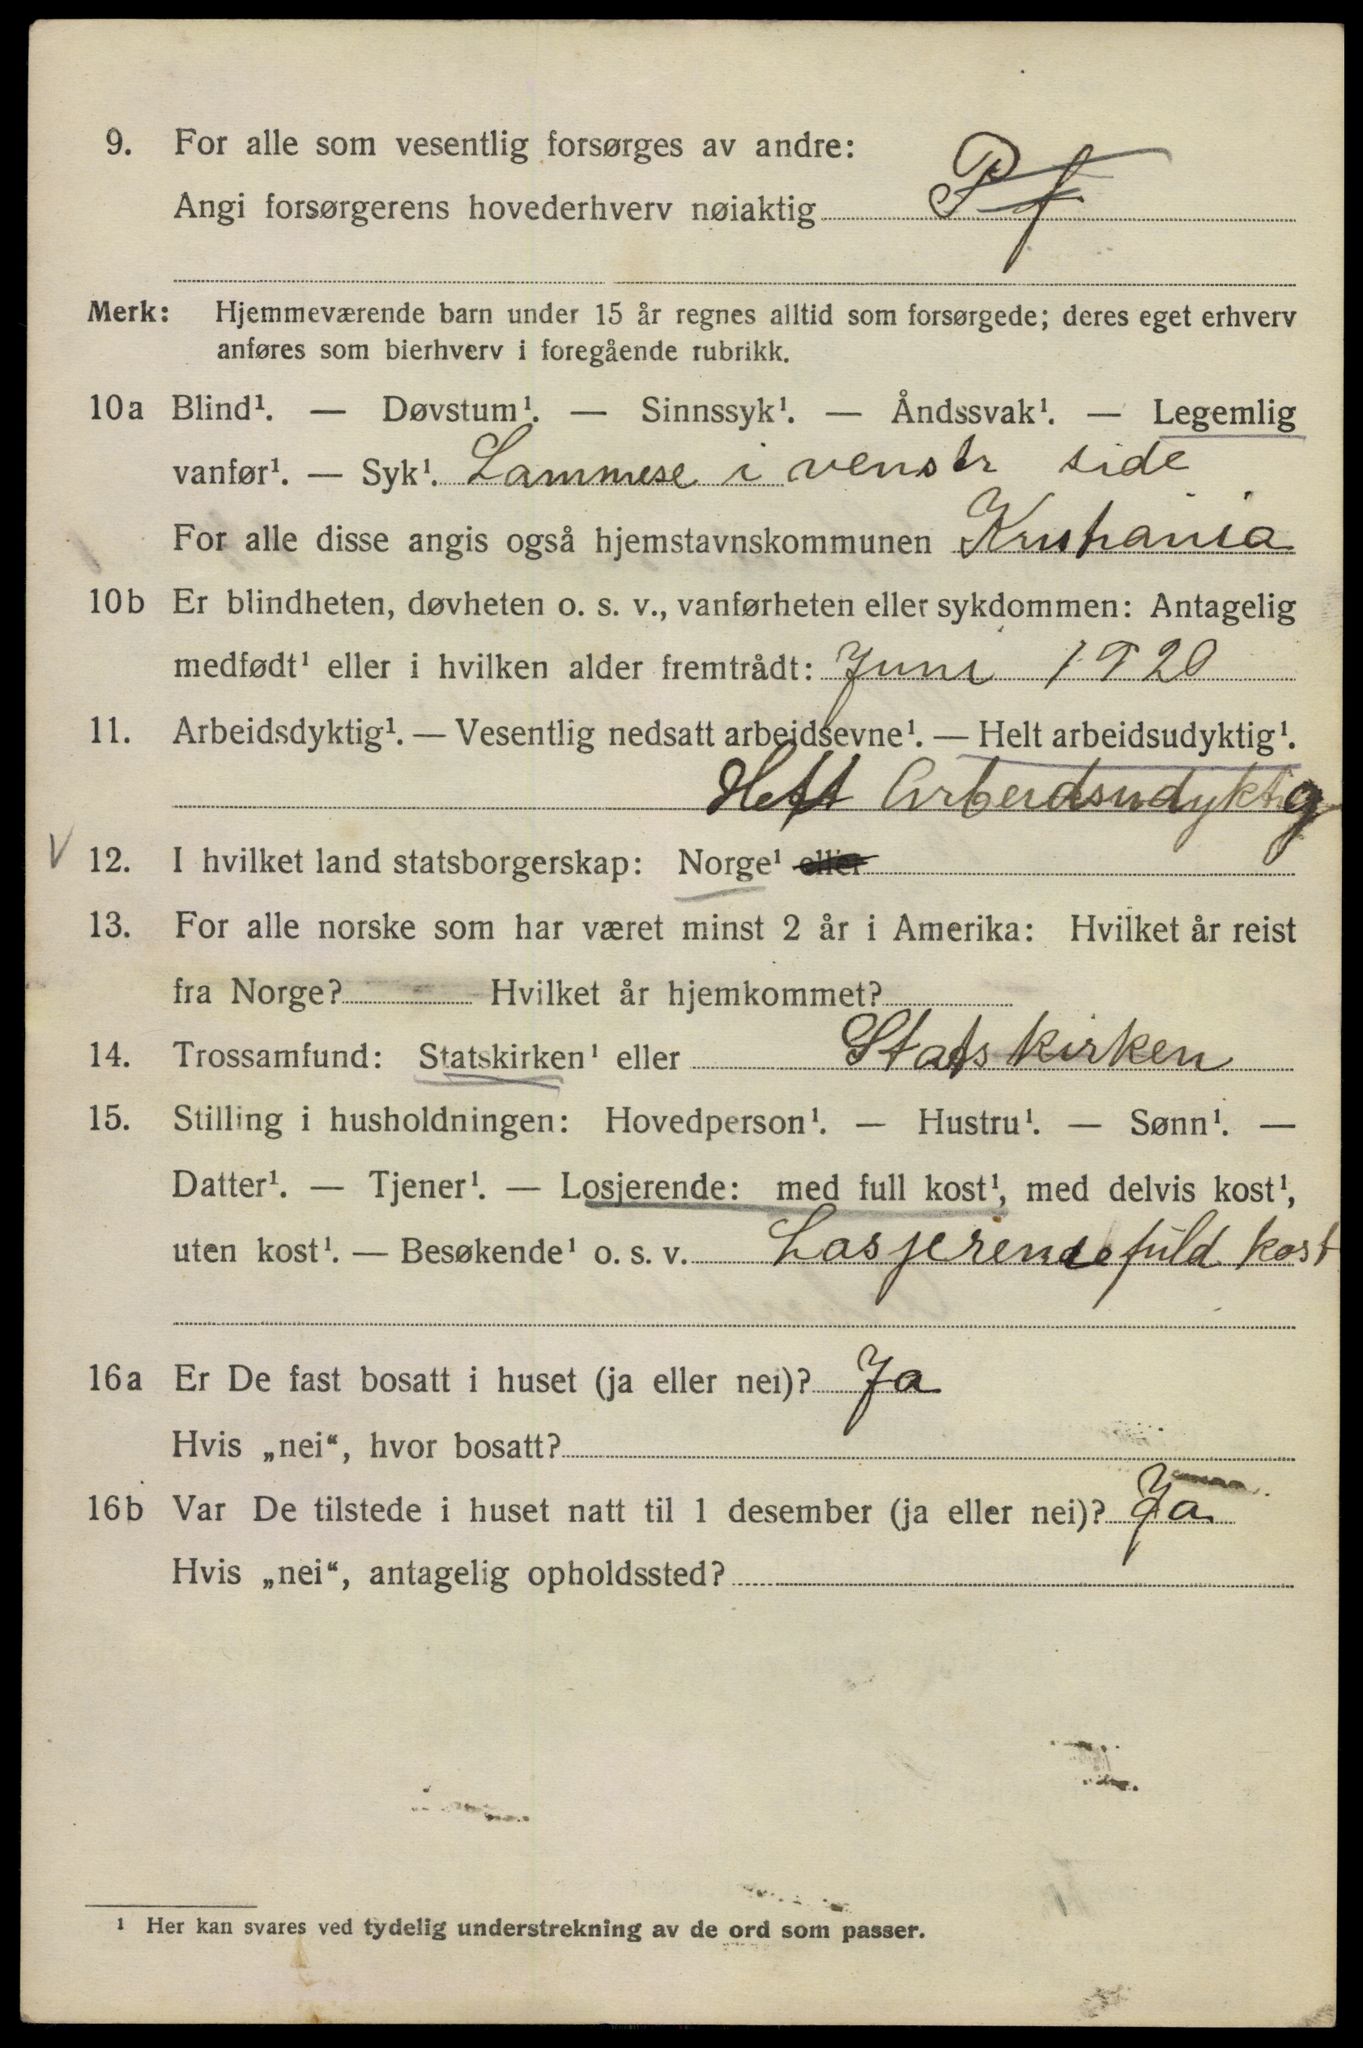 9. For alle som vesentlig forsørges av andre:
Angi forsørgerens hovederhverv nøiaktig Pf
Merk: Hjemmeværende barn under 15 år regnes alltid som forsørgede; deres eget erhverv
anføres som bierhverv i foregående rubrikk.
10a Blind¹. — Døvstum¹. — Sinnssyk¹. — Åndssvak¹. — Legemlig
vanfør¹. — Syk¹. Lammese i venstr side
For alle disse angis også hjemstavnskommunen Kristiania
10b Er blindheten, døvheten o. s. v., vanførheten eller sykdommen: Antagelig
medfødt¹ eller i hvilken alder fremtrådt: Juni 1920
11. Arbeidsdyktig¹. — Vesentlig nedsatt arbeidsevne¹. — Helt arbeidsudyktig¹.
Helt Arbeidsudyktig
V 12. I hvilket land statsborgerskap: Norge¹ eller
13. For alle norske som har været minst 2 år i Amerika: Hvilket år reist
fra Norge? Hvilket år hjemkommet?
14. Trossamfund: Statskirken¹ eller Statskirken
15. Stilling i husholdningen: Hovedperson¹. — Hustru¹. — Sønn¹. —
Datter¹. — Tjener¹. — Losjerende: med full kost¹, med delvis kost¹,
uten kost¹. — Besøkende¹ o. s. v. Losjerende fuld kost
16a Er De fast bosatt i huset (ja eller nei)? Ja
Hvis „nei“, hvor bosatt?
16b Var De tilstede i huset natt til 1 desember (ja eller nei)? Ja
Hvis „nei“, antagelig opholdssted?
¹ Her kan svares ved tydelig understrekning av de ord som passer.